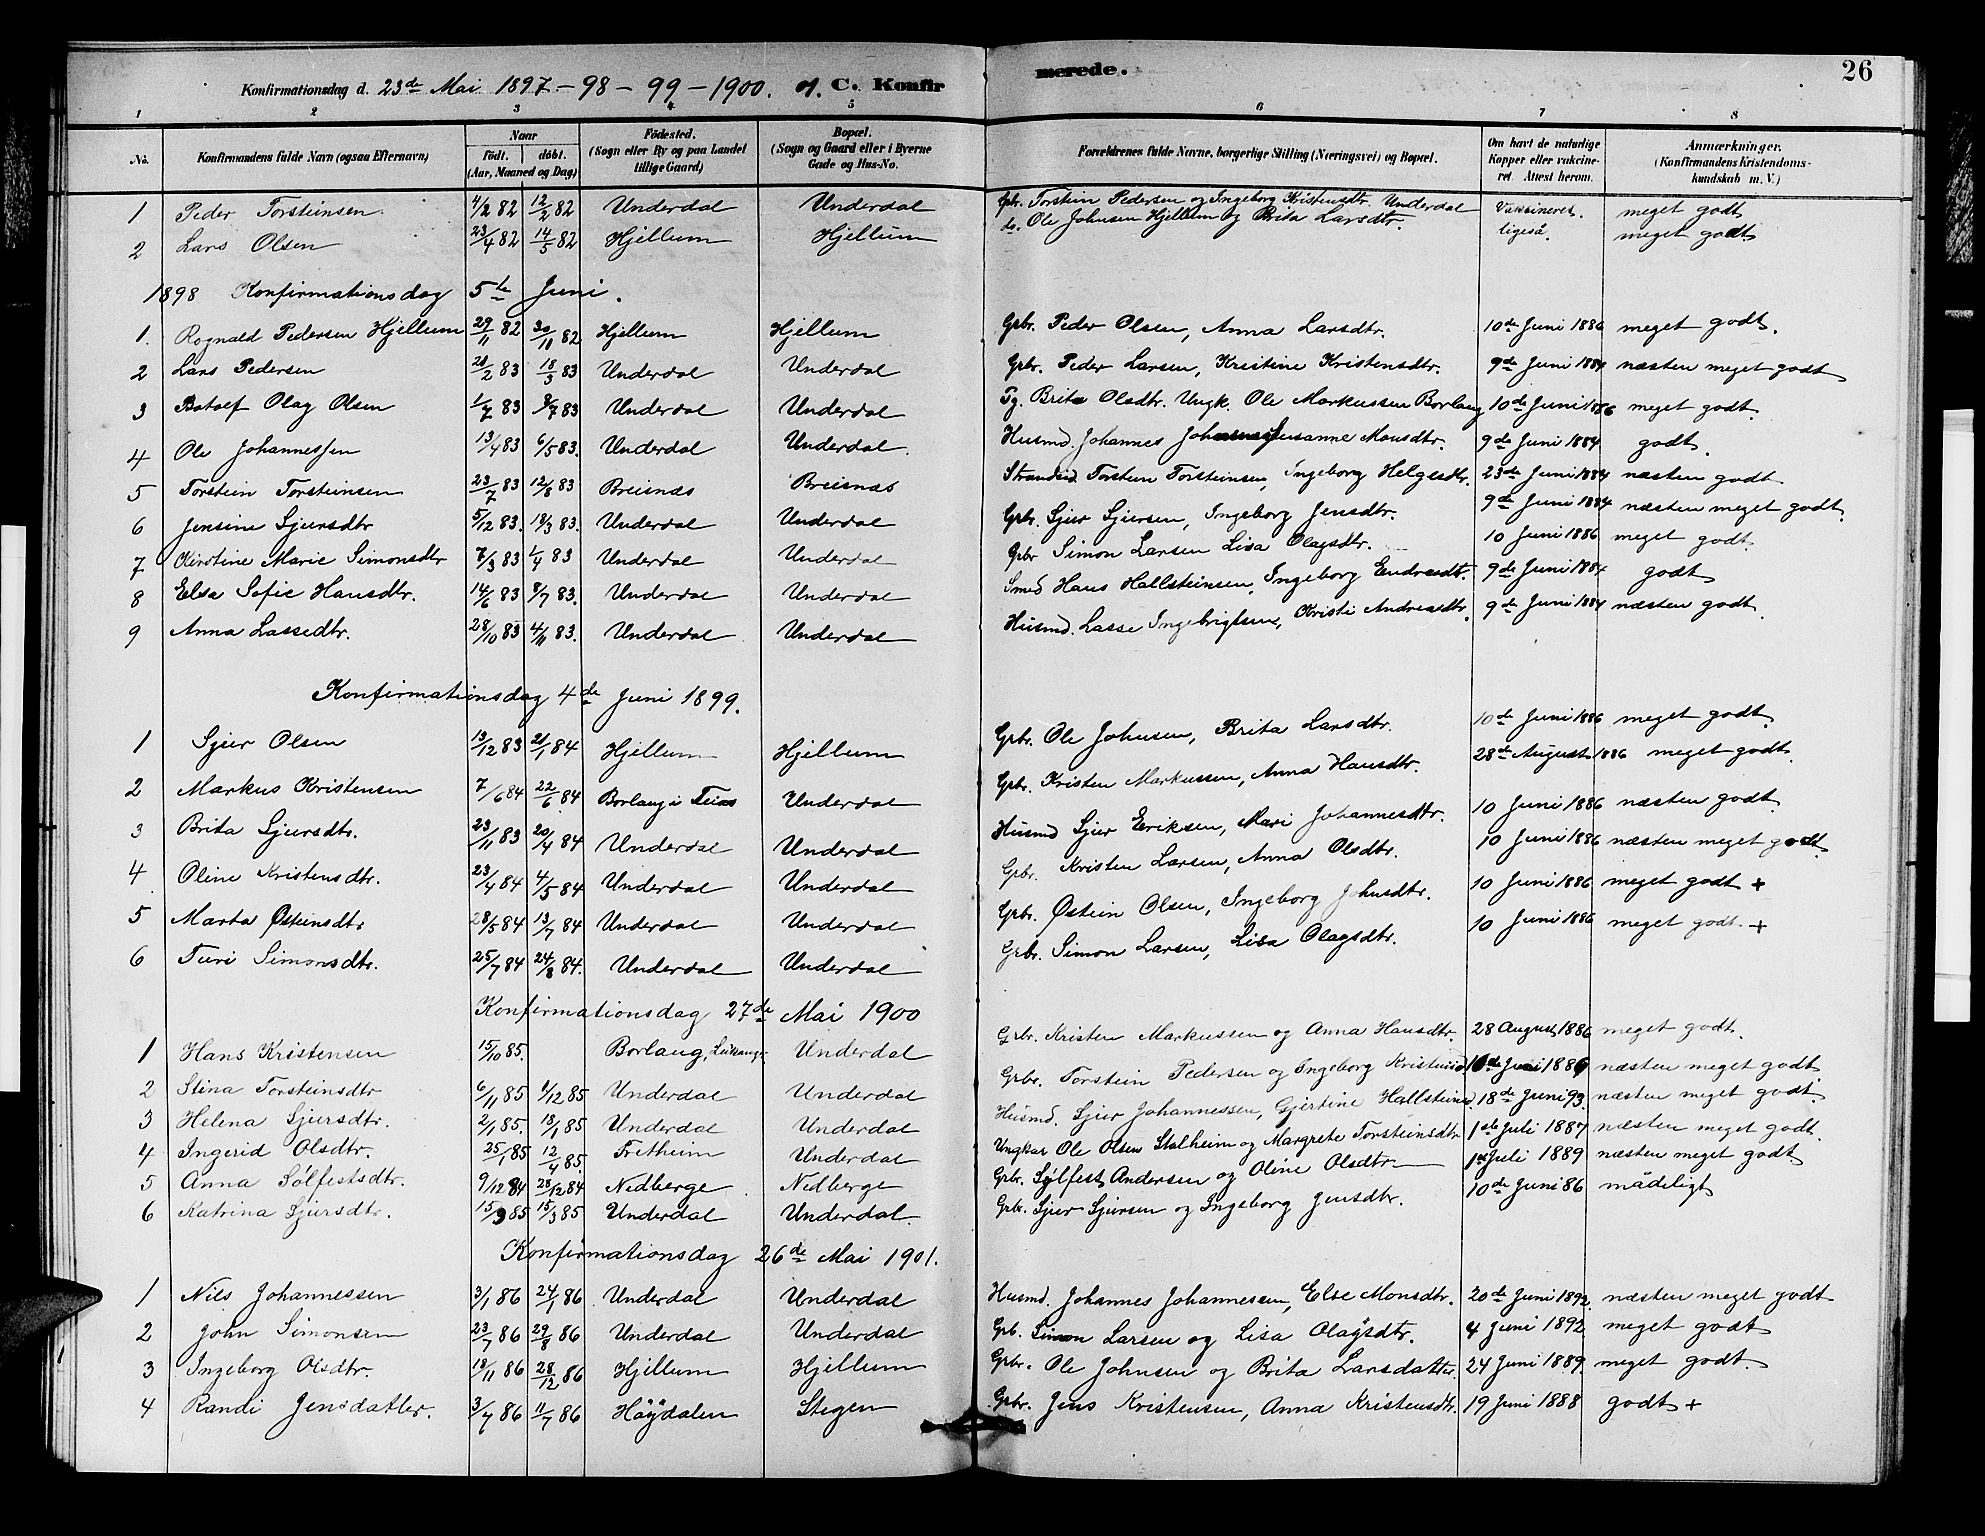 Konfirmationsdag d. 23de Mai 1897 - 98 - 99 - 1900. C. Konfirmerede. 26
1 2 3 4 5 6 7 8
No. Konfirmandens fulde Navn (ogsaa Efternavn) Naar født. døbt. (Aar, Maaned og Dag) Fødested. (Sogn eller By og paa Landet tillige Gaard) Bopæl. (Sogn og Gaard eller i Byerne Gade og Hus-No. Forældrenes fulde Navne, borgerlige Stilling (Næringsvei) og Bopæl. Om havt de naturlige Kopper eller vakcineret. Attest herom. Anmærkninger. (Konfirmandens Kristendomskundskab m. V.)
1 Peder Torsteinsen 4/2 82 12/2 82 Underdal Underdal Gbr. Torstein Pedersen og Ingeborg Kristensdtr. Underdal Vaksineret. meget godt
2 Lars Olsen 23/4 82 14/5 82 Hjellum Hjellum do. Ole Johnsen Hjellum og Brita Larsdtr. ligeså. meget godt
1898 Konfirmationsdag 5te Juni.
1. Rognald Pedersen Hjellum 29/11 82 30/11 82 Hjellum Hjellum Grbr. Peder Olsen, Anna Larsdtr. 10de Juni 1886 meget godt.
2 Lars Pedersen 28/2 83 18/3 83 Underdal Underdal Grbr. Peder Larsen, Kristine Kristensdtr. 9de Juni 1884 næsten meget godt
3 Botolf Olag Olsen 1/7 83 8/7 83 Underdal Underdal Tg. Brita Olsdtr. Ungk. Ole Markussen Borlaug 10de Juni 1886 meget godt.
4 Ole Johannessen 13/4 83 6/5 83. Underdal Underdal. Husmd. Johannes Susanne Monsdtr. 9de Juni 1884 godt.
5 Torstein Torsteinsen 23/7 83 12/8 83 Breisnæs Breisnæs Strandsid. Torstein Torsteinsen, Ingeborg Helgesdtr. 23de Juni 1884 næsten godt
6 Jensine Sjursdtr 5/12 83. 18/3 83. Underdal Underdal Grbr. Sjur Sjursen, Ingeborg Jensdtr. 9de Juni 1884 næsten meget godt.
7 Kirstine Marie Simonsdtr 7/3 83 1/4 83 Underdal Underdal Grbr Simon Larsen Lisa Olagsdtr. 10 Juni 1886 meget godt
8 Elsa Sofie Hansdtr. 14/6 83 8/7 83. Underdal Underdal Smed Hans Hallsteinsen, Ingeborg Endresdtr. 9de Juni 1884 godt
9 Anna Lassedtr. 28/10 83 4/11 83. Underdal Underdal Husmd. Lasse Ingebrigtsen, Kristi Andreasdtr. 9de Juni 1884 næsten godt
Konfirmationsdag 4de Juni 1899.
1 Sjur Olsen 13/12 83 21/1 84 Hjellum Hjellum Grbr. Ole Johnsen, Brita Larsdtr. 10de Juni 1886 meget godt.
2 Markus Kristensen 7/6 84 22/6 84 Borlaug i Underdal Grbr. Kristen Markussen, Anna Hansdtr. 28de August 1886 meget godt.
3 Brita Sjursdtr. 23/11 83 20/4 84 Underdal Underdal Husmd Sjur Eriksen, Mari Johannesdtr. 10 Juni 1886 næsten godt
4 Oline Kristensdtr. 23/4 84 4/5 84 Underdal Underdal Grbr. Kristen Larsen, Anna Olsdtr. 10 Juni 1886 næsten meget godt.
5 Marta Østeinsdtr 28/5 84 13/7 84 Underdal Underdal Grbr. Østein Olsen, Ingeborg Johnsdtr. 10 Juni 1886 meget godt +
6 Turi Simonsdtr. 25/7 84 24/8 84. Underdal Underdal Grbr. Simon Larsen, Lisa Olagsdtr. 10 Juni 1886 meget godt. +
Konfirmationsdag 27de Mai 1900
1 Hans Kristensen 15/10 85. Borlaug, Underdal Grbr. Kristen Markussen og Anna Hansdtr. 28 August 1886 meget godt.
2 Stina Torsteinsdtr 6/11 85 1/12 85 Underdal Underdal Grbr. Torstein Pedersen og Ingeborg 10de Juni 1886 næsten meget godt.
3 Helena Sjursdtr. 2/1 85. 18/1 85 Underdal Underdal Husmd. Sjur Johannessen, Gjertine 18de Juni 93. næsten meget godt
4 Ingerid Olsdtr. 25/1 85 12/4 85. Fretheim Underdal Ungkar Ole Olsen Stalheim og Margrete Torsteinsdtr 1ste Juli 1887 næsten meget godt.
5 Anna Sølfestsdtr. 9/12 84 28/12 84 Nedberge Nedberge Grbr. Sølfest Andersen og Oline Olsdtr 1ste Juli 1889 næsten meget godt
6 Katrina Sjursdtr. 15/3 85 15/3 85 Underdal Underdal. Grbr. Sjur Sjursen og Ingeborg Jensdtr. 10de Juni 86 mådeligt
Konfirmationsdag 26de Mai 1901.
1 Nils Johannessen 3/1 86 24/1 86 Underdal Underdal Husmd. Johannes Johannessen, Else Monsdtr. 20de Juni 1892. næsten meget godt
2 John Simonsen 23/7 86 29/8 86 Underdal Underdal Grb. Simon Larsen og Lisa Olagsdtr. 4 Juni 1892 meget godt
3 Ingeborg Olsdtr. 18/11 86 28/12 86 Hjellum Hjellum Grbr. Ole Johnsen og Brita Larsdatter 24 Juni 1889. meget godt.
4 Randi Jensdatter. 3/7 86 11/7 86 Høydalen Stegen Grbr. Jens Kristensen, Anna Kristensdtr. 19 Juni 1888 godt +